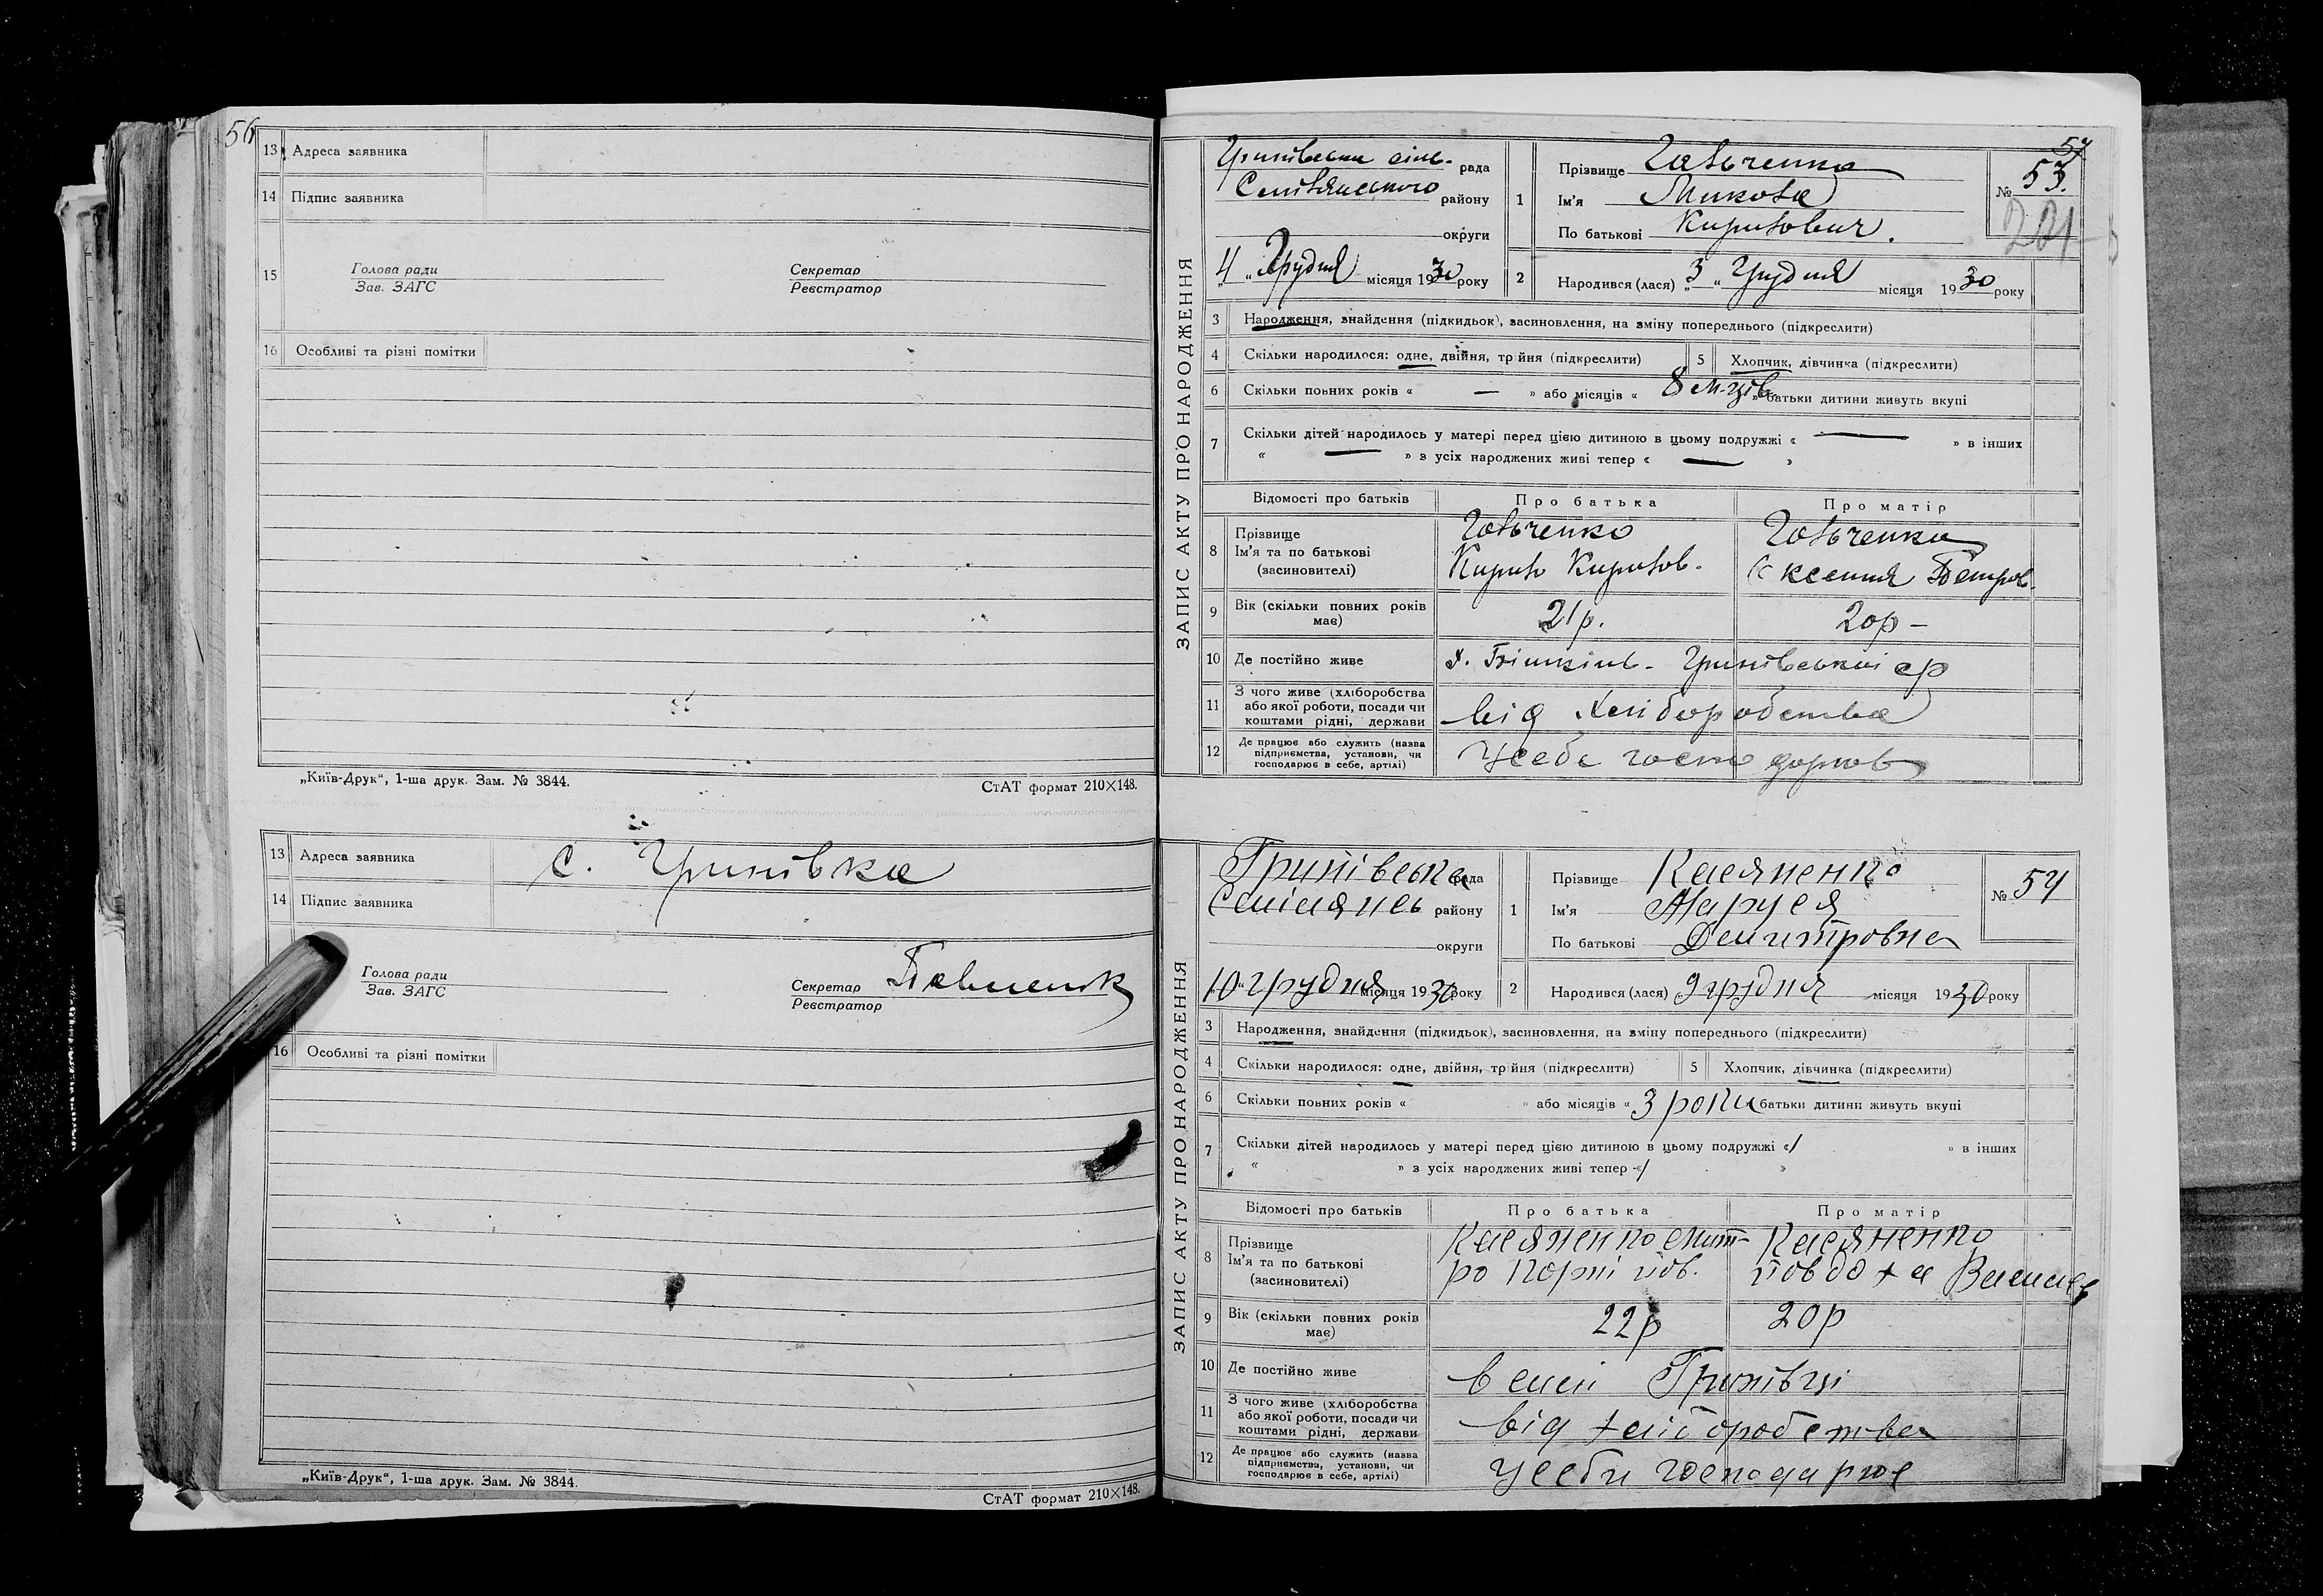 56
13 Адреса заявника
14 Підпис заявника
15 Голова ради
Зав. ЗАГС
Секретар
Реєстратор
16 Особливі та різні помітки
„Київ-Друк“, 1-ша друк. Зам. № 3844.
СтАТ формат 210×148.
13 Адреса заявника с. Гринівка
14 Підпис заявника
Голова ради
Зав. ЗАГС
Секретар
Реєстратор
16 Особливі та різні помітки
„Київ-Друк“, 1-ша друк. Зам. № 3844.
СтАТ формат 210×148.
57
ЗАПИС АКТУ ПРО НАРОДЖЕННЯ
рада
району
округи
4 „ Грудня місяця 1930 року
1 Прізвище
Ім'я Микола
По батькові Кирилович.
№ 53.
2 Народився (лася) „3“ Грудня місяця 1930 року
3 Народження, знайдення (підкидьок), засиновлення, на зміну попереднього (підкреслити)
4 Скільки народилося: одне, двійня, трійня (підкреслити) 5 Хлопчик, дівчинка (підкреслити)
6 Скільки повних років « — » або місяців « 8 м-ців » батьки дитини живуть вкупі
7 Скільки дітей народилось у матері перед цією дитиною в цьому подружжі « — » в інших
« — » з усіх народжених живі тепер « — »
Відомості про батьків Про батька Про матір
8 Прізвище
Ім'я та по батькові Кирило Кирилов. Ксения Петров.
(засиновителі)
9 Вік (скільки повних років має) 21р. 20р –
10 Де постійно живе х. Гринівської с/р
11 З чого живе (хліборобства
або якої роботи, посади чи
коштами рідні, держави від хліборобства
12 Де працює або служить (назва
підприємства, установи, чи
господарює в себе, артілі) У себе
ЗАПИС АКТУ ПРО НАРОДЖЕННЯ
Гринівська рада
району
округи
10 „ грудня місяця 1930 року
1 Прізвище Касяненко
Ім'я Маруся
По батькові Дмитровна
№ 54
2 Народився (лася) 9 грудня місяця 1930 року
3 Народження, знайдення (підкидьок), засиновлення, на зміну попереднього (підкреслити)
4 Скільки народилося: одне, двійня, трійня (підкреслити) 5 Хлопчик, дівчинка (підкреслити)
6 Скільки повних років « » або місяців « 3 роки батьки дитини живуть вкупі
7 Скільки дітей народилось у матері перед цією дитиною в цьому подружжі «1 » в інших
« » з усіх народжених живі тепер «1 »
Відомості про батьків Про батька Про матір
8 Прізвище Касяненко Касяненко
Ім'я та по батькові
(засиновителі)
9 Вік (скільки повних років має) 22р 20р
10 Де постійно живе в селі Гринівці
11 З чого живе (хліборобства
або якої роботи, посади чи
коштами рідні, держави від хліборобства
12 Де працює або служить (назва
підприємства, установи, чи
господарює в себе, артілі) у себи господарює